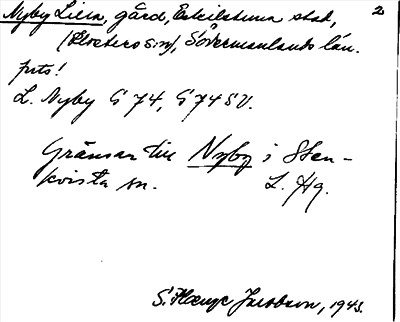 Nyby Lilla, gård, Eskilstuna stad, 2
(Klosters sn), Södermanlands län.
juts!
L. Nyby G 74, G 74 SV.
Gränsar till Nyby i Sten-
kvista sn. L. Hg.
S. Jacobson, 1943.